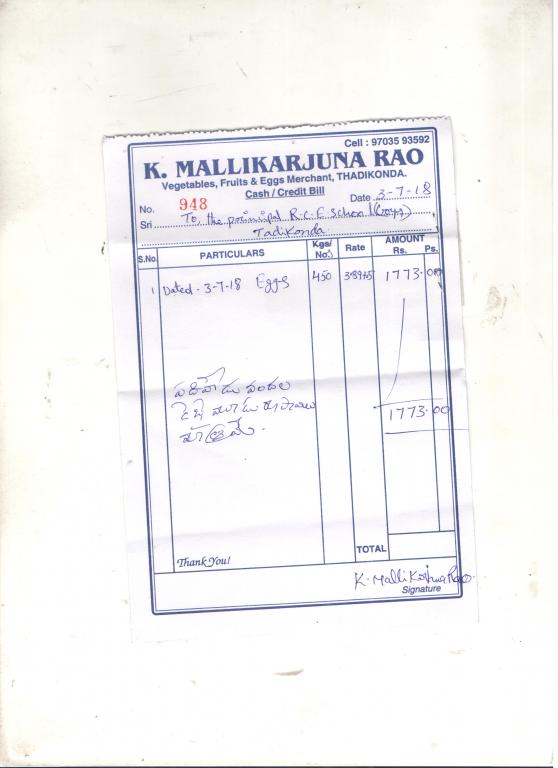 Cell : 97035 93592
K. MALLIKARJUNA RAO
Vegetables, Fruits & Eggs Merchant, THADIKONDA.
Cash / Credit Bill
No. 948 Date 3-7-18
Sri To, the principal R.C.E School (Boys)
Tadikonda
S.No. PARTICULARS Kgs/No. Rate AMOUNT Rs. Ps.
1 Dated - 3-7-18 Eggs 450 1773.00
పదిహేడు వందల
డెబ్బై మూడు రూపాయలు
మాత్రమే.
1773.00
TOTAL
Thank You!
Signature